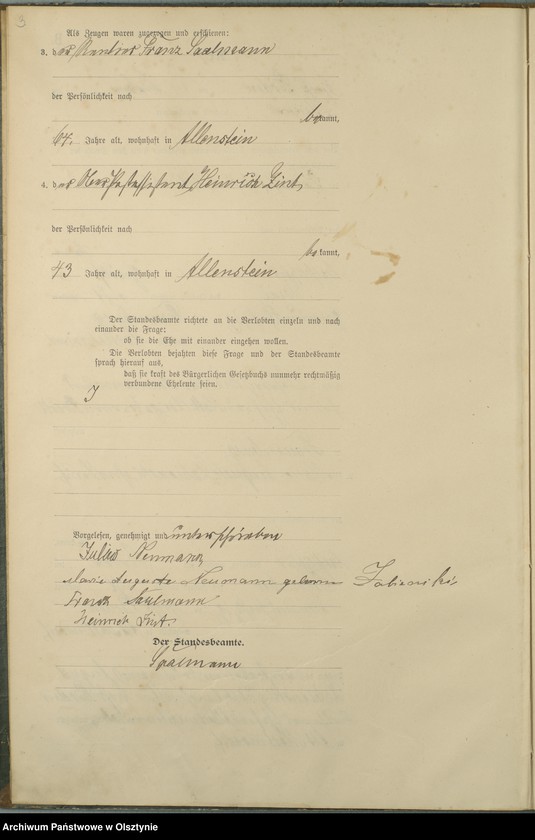 3
Als Zeugen waren zugezogen und erschienen:
3. der Kantor Franz Saalmann
der Persönlichkeit nach
bekannt,
64 Jahre alt, wohnhaft in Allenstein
4. der Oberpostassistent Heinrich Zint,
der Persönlichkeit nach
bekannt,
43 Jahre alt, wohnhaft in Allenstein
Der Standesbeamte richtete an die Verlobten einzeln und nach
einander die Frage:
ob sie die Ehe mit einander eingehen wollen.
Die Verlobten bejahten diese Frage und der Standesbeamte
sprach hierauf aus,
daß sie kraft des Bürgerlichen Gesetzbuchs nunmehr rechtmäßig
verbundene Eheleute seien.
Vorgelesen, genehmigt und unterschrieben
Julius Neumann
Marie Auguste Neumann geborene
Franz Saalmann
Heinrich Zint.
Der Standesbeamte.
Saalmann
Archiwum Państwowe w Olsztynie